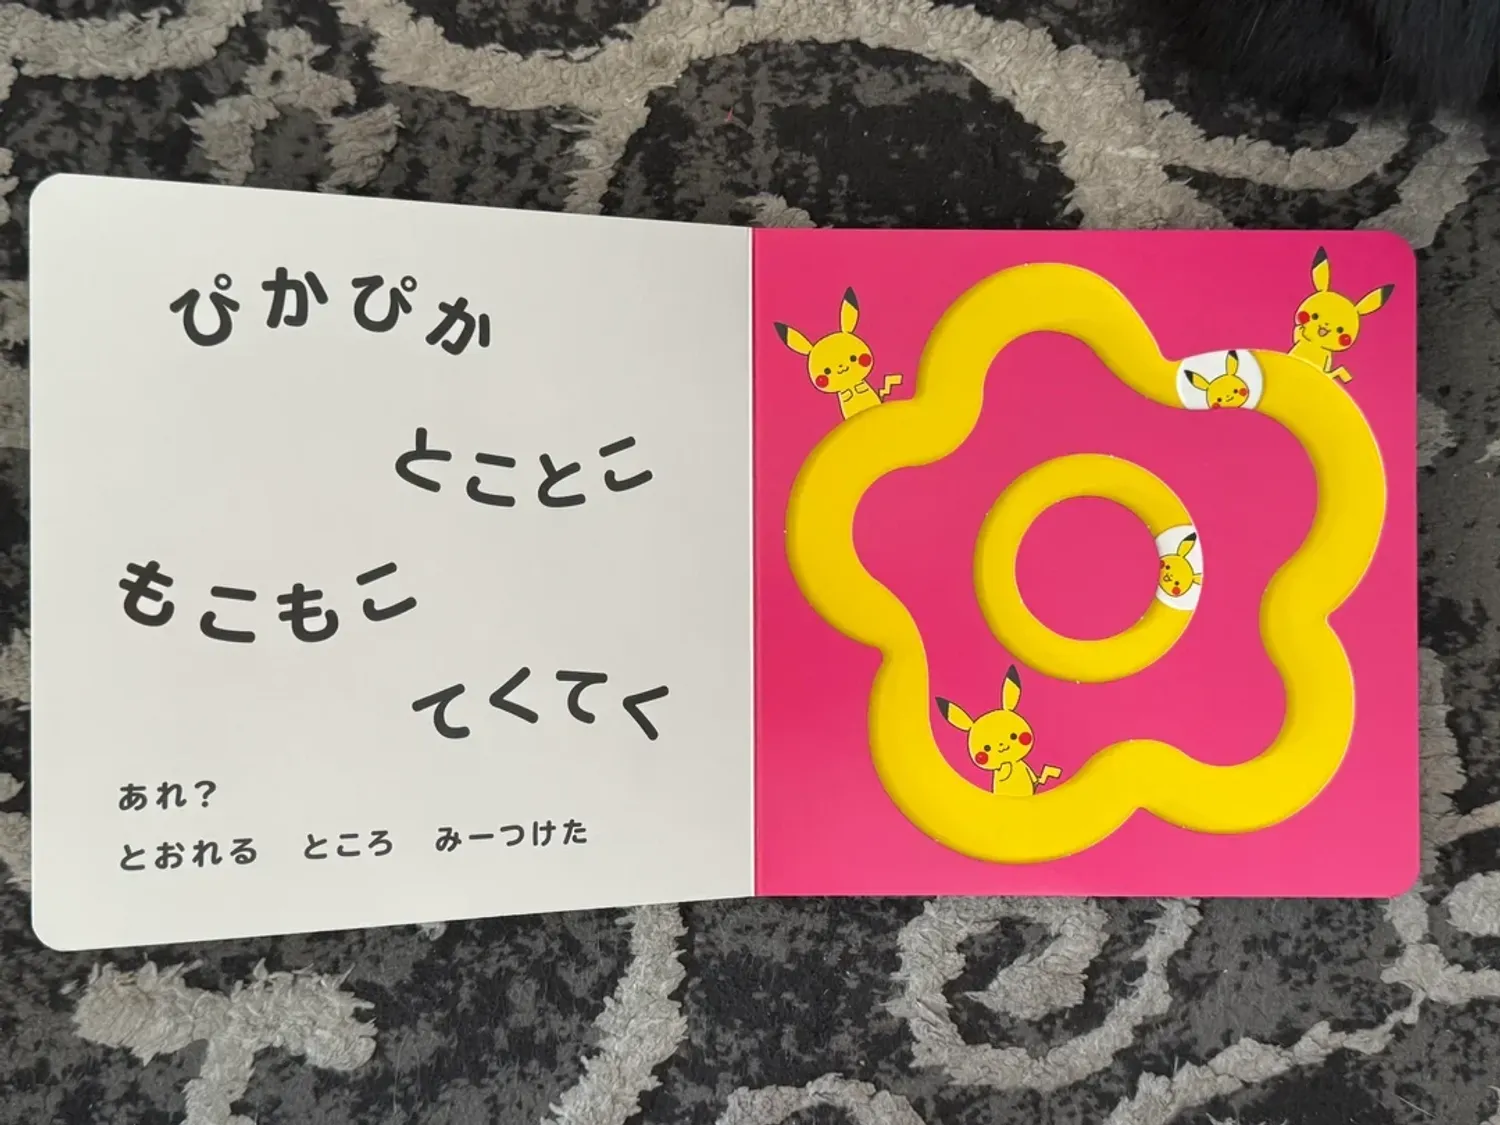 ぴかぴか
とことこ
もこもこ
てくてく
あれ？
とおれる　ところ　みーつけた